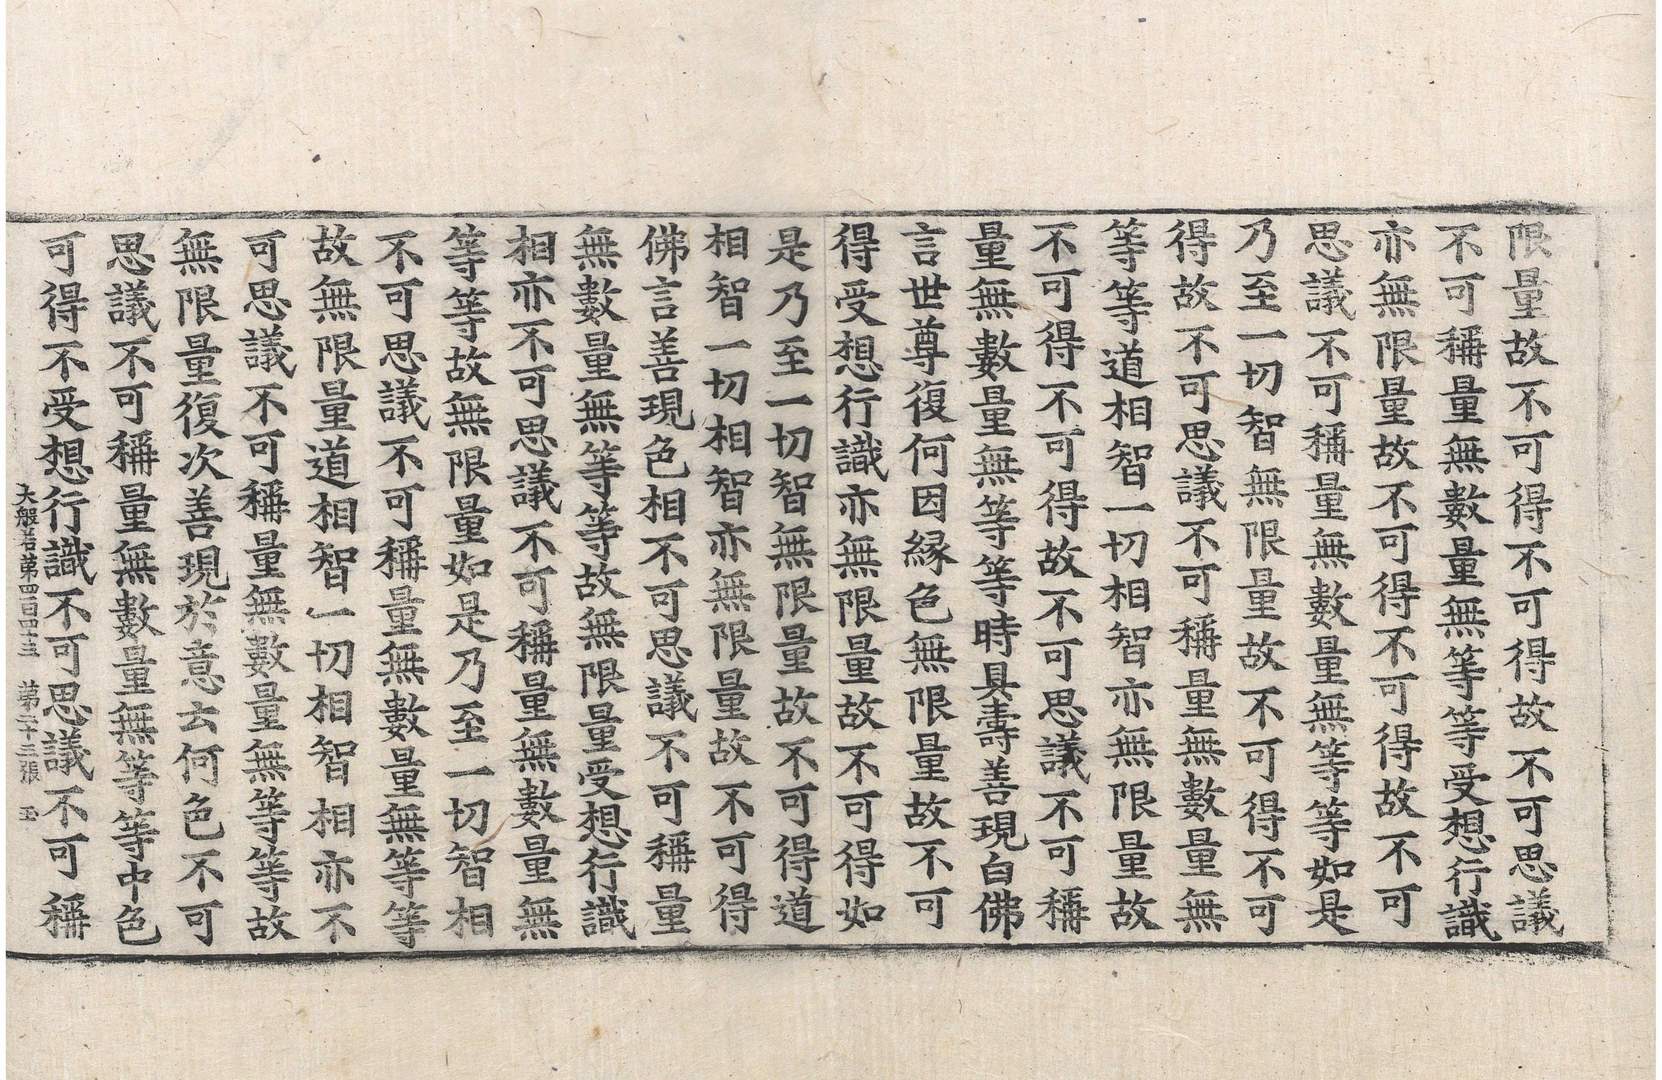 限量故不可得不可得故不可思議
不可稱量無數量無等等受想行識
亦無限量故不可得不可得故不可
思議不可稱量無數量無等等如是
乃至一切智無限量故不可得不可
得故不可思議不可稱量無數量無
等等道相智一切相智亦無限量故
不可得不可得故不可思議不可稱
量無數量無等等時具壽善現白佛
言世尊復何因縁色無限量故不可
得受想行識亦無限量故不可得如
是乃至一切智無限量故不可得道
相智一切相智亦無限量故不可得
佛言善現色相不可思議不可稱量
無數量無等等故無限量受想行識
相亦不可思議不可稱量無數量無
等等故無限量如是乃至一切智相
不可思議不可稱量無數量無等等
故無限量道相智一切相智相亦不
可思議不可稱量無數量無等等故
無限量復次善現於意云何色不可
思議不可稱量無數量無等等中色
可得不受想行識不可思議不可稱
大般若第四百四十三　第二十二張　玉